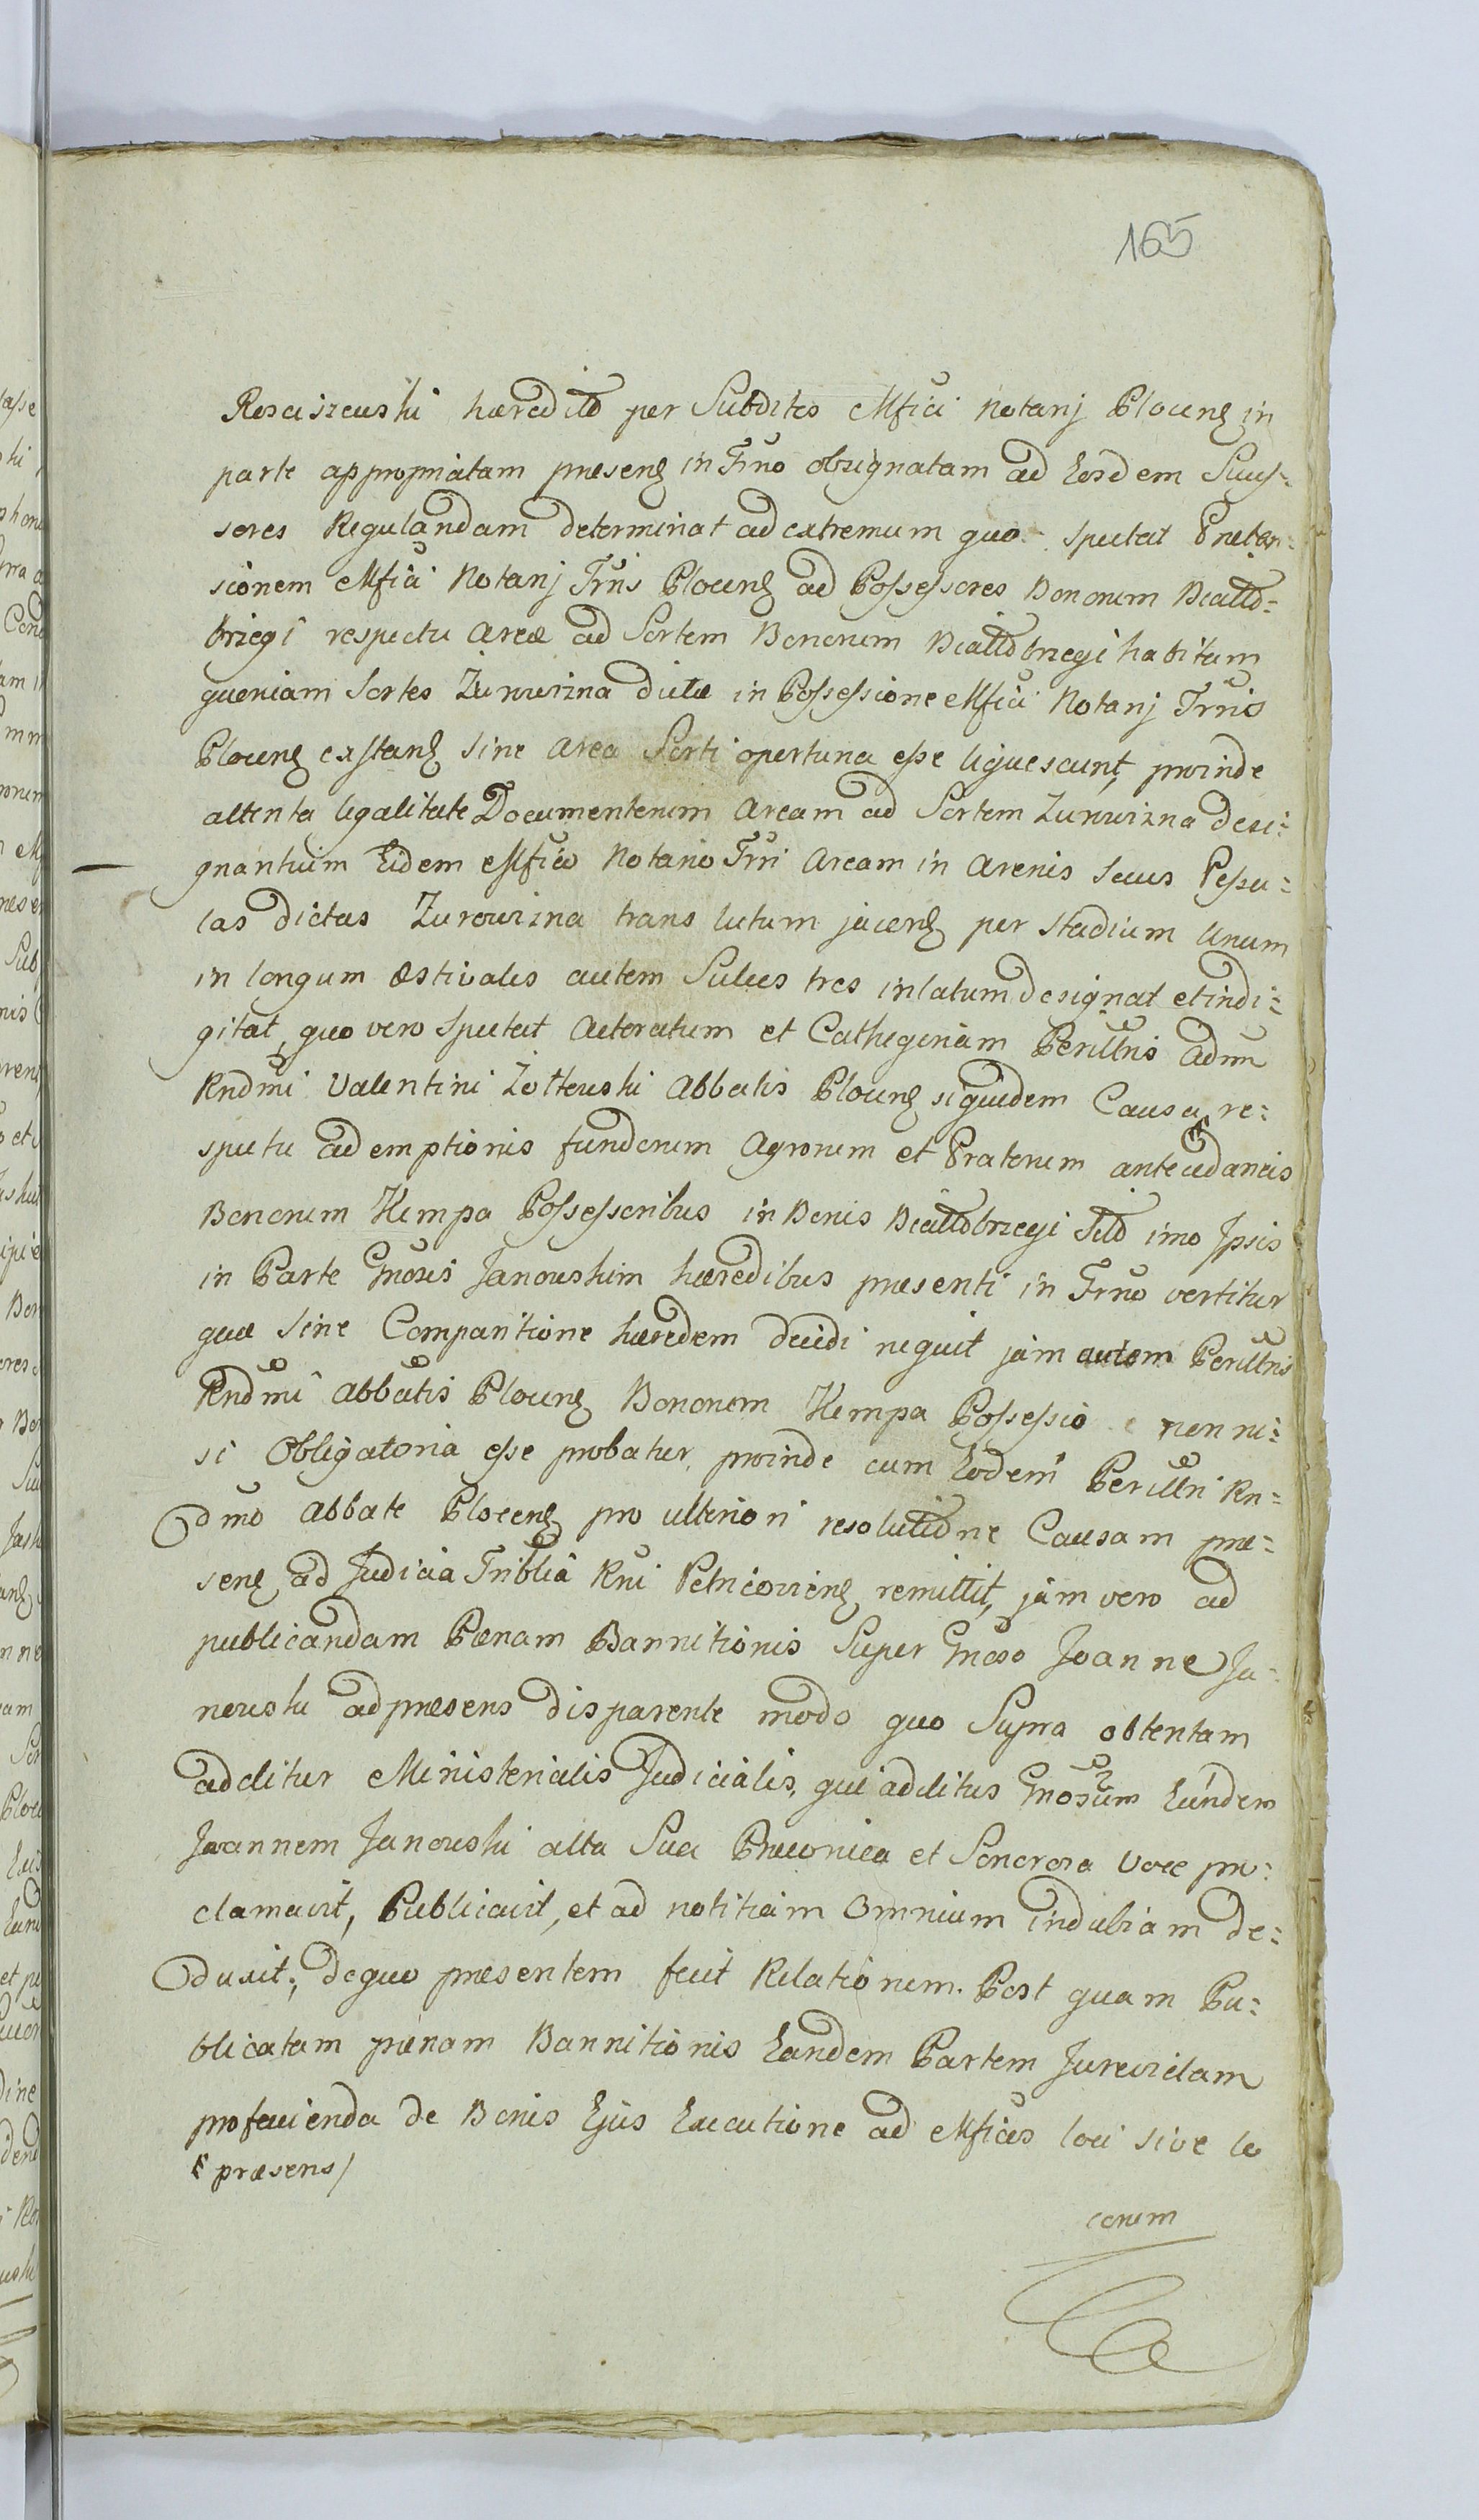 165
Rosciszewski hæredito per Subditos Mfici Notarij Plocens in
parte appropriatam præsens in Trno obsignatam ad Eosdem Suus-
sores Regulandam determinat ad extremum quo spectat Præten:
sionem Mfici Notarij Trris Plocens ad Possessores Bonorum Biało-
brzegi respectu Areæ ad Sortem Bonorum Białobrzegi habitam
quoniam Sortes Zurawizna dictæ in Possessione Mfici Notarij Trris
Plocens exstans sine Area Sorti oportuna esse liquescunt, proinde
attenta legalitate Documentorum Aream ad Sortem Zurawizna desi:
gnantium Eidem Mfico Notario Trri Aream in Arenis secus Pessu:
las dictas Zurowizna trans lutum jacens per stadium Unum
in longum Æstivales autem Sulcos tres in latum designat et indi:
gitat, quo vero spectat Actoratum et Cathegoriam Perillris Adm
Rndmi Valentini Zołtowski Abbatis Plocens siquidem Causa re:
spectu ademptionis fundorum Agrorum et Pratorum antecedaneis
Bonorum Kempa Possessoribus in Bonis Białobrzegi sito imo Ipsis
in Parte Gnosis Janowskim hæredibus præsenti in Trno vertitur
quæ sine Comparitione hæredem decidi nequit jam autem Perillris
Rndmi Abbatis Plocens Bonorum Kempa Possessio non ni:
si Obligatoria esse probatur, proinde cum Eodem Perillri Rn:
dmo Abbate Plocens pro ulteriori resolutione Causam præ:
sens ad Judicia Triblia Rni Petricoviens remittit, jam vero ad
publicandam Pænam Bannitionis Super Gnoso Joanne Ja:
nowski ad præsens disparente modo quo Supra obtentam
additur Ministerialis Judicialis, qui additus Gnosum Eundem
Joannem Janowski alta Sua Præconica et Sonorosa Voce pro:
clamavit, Publicavit, et ad notitiam Omnium indubiam de:
duxit; de quo præsentem fecit Relationem. Post quam Pu:
blicatam pænam Bannitionis Eandem Partem Jurevictam
pro facienda de Bonis Ejus Executione ad Mficos loci sive lo
præsens/
corum